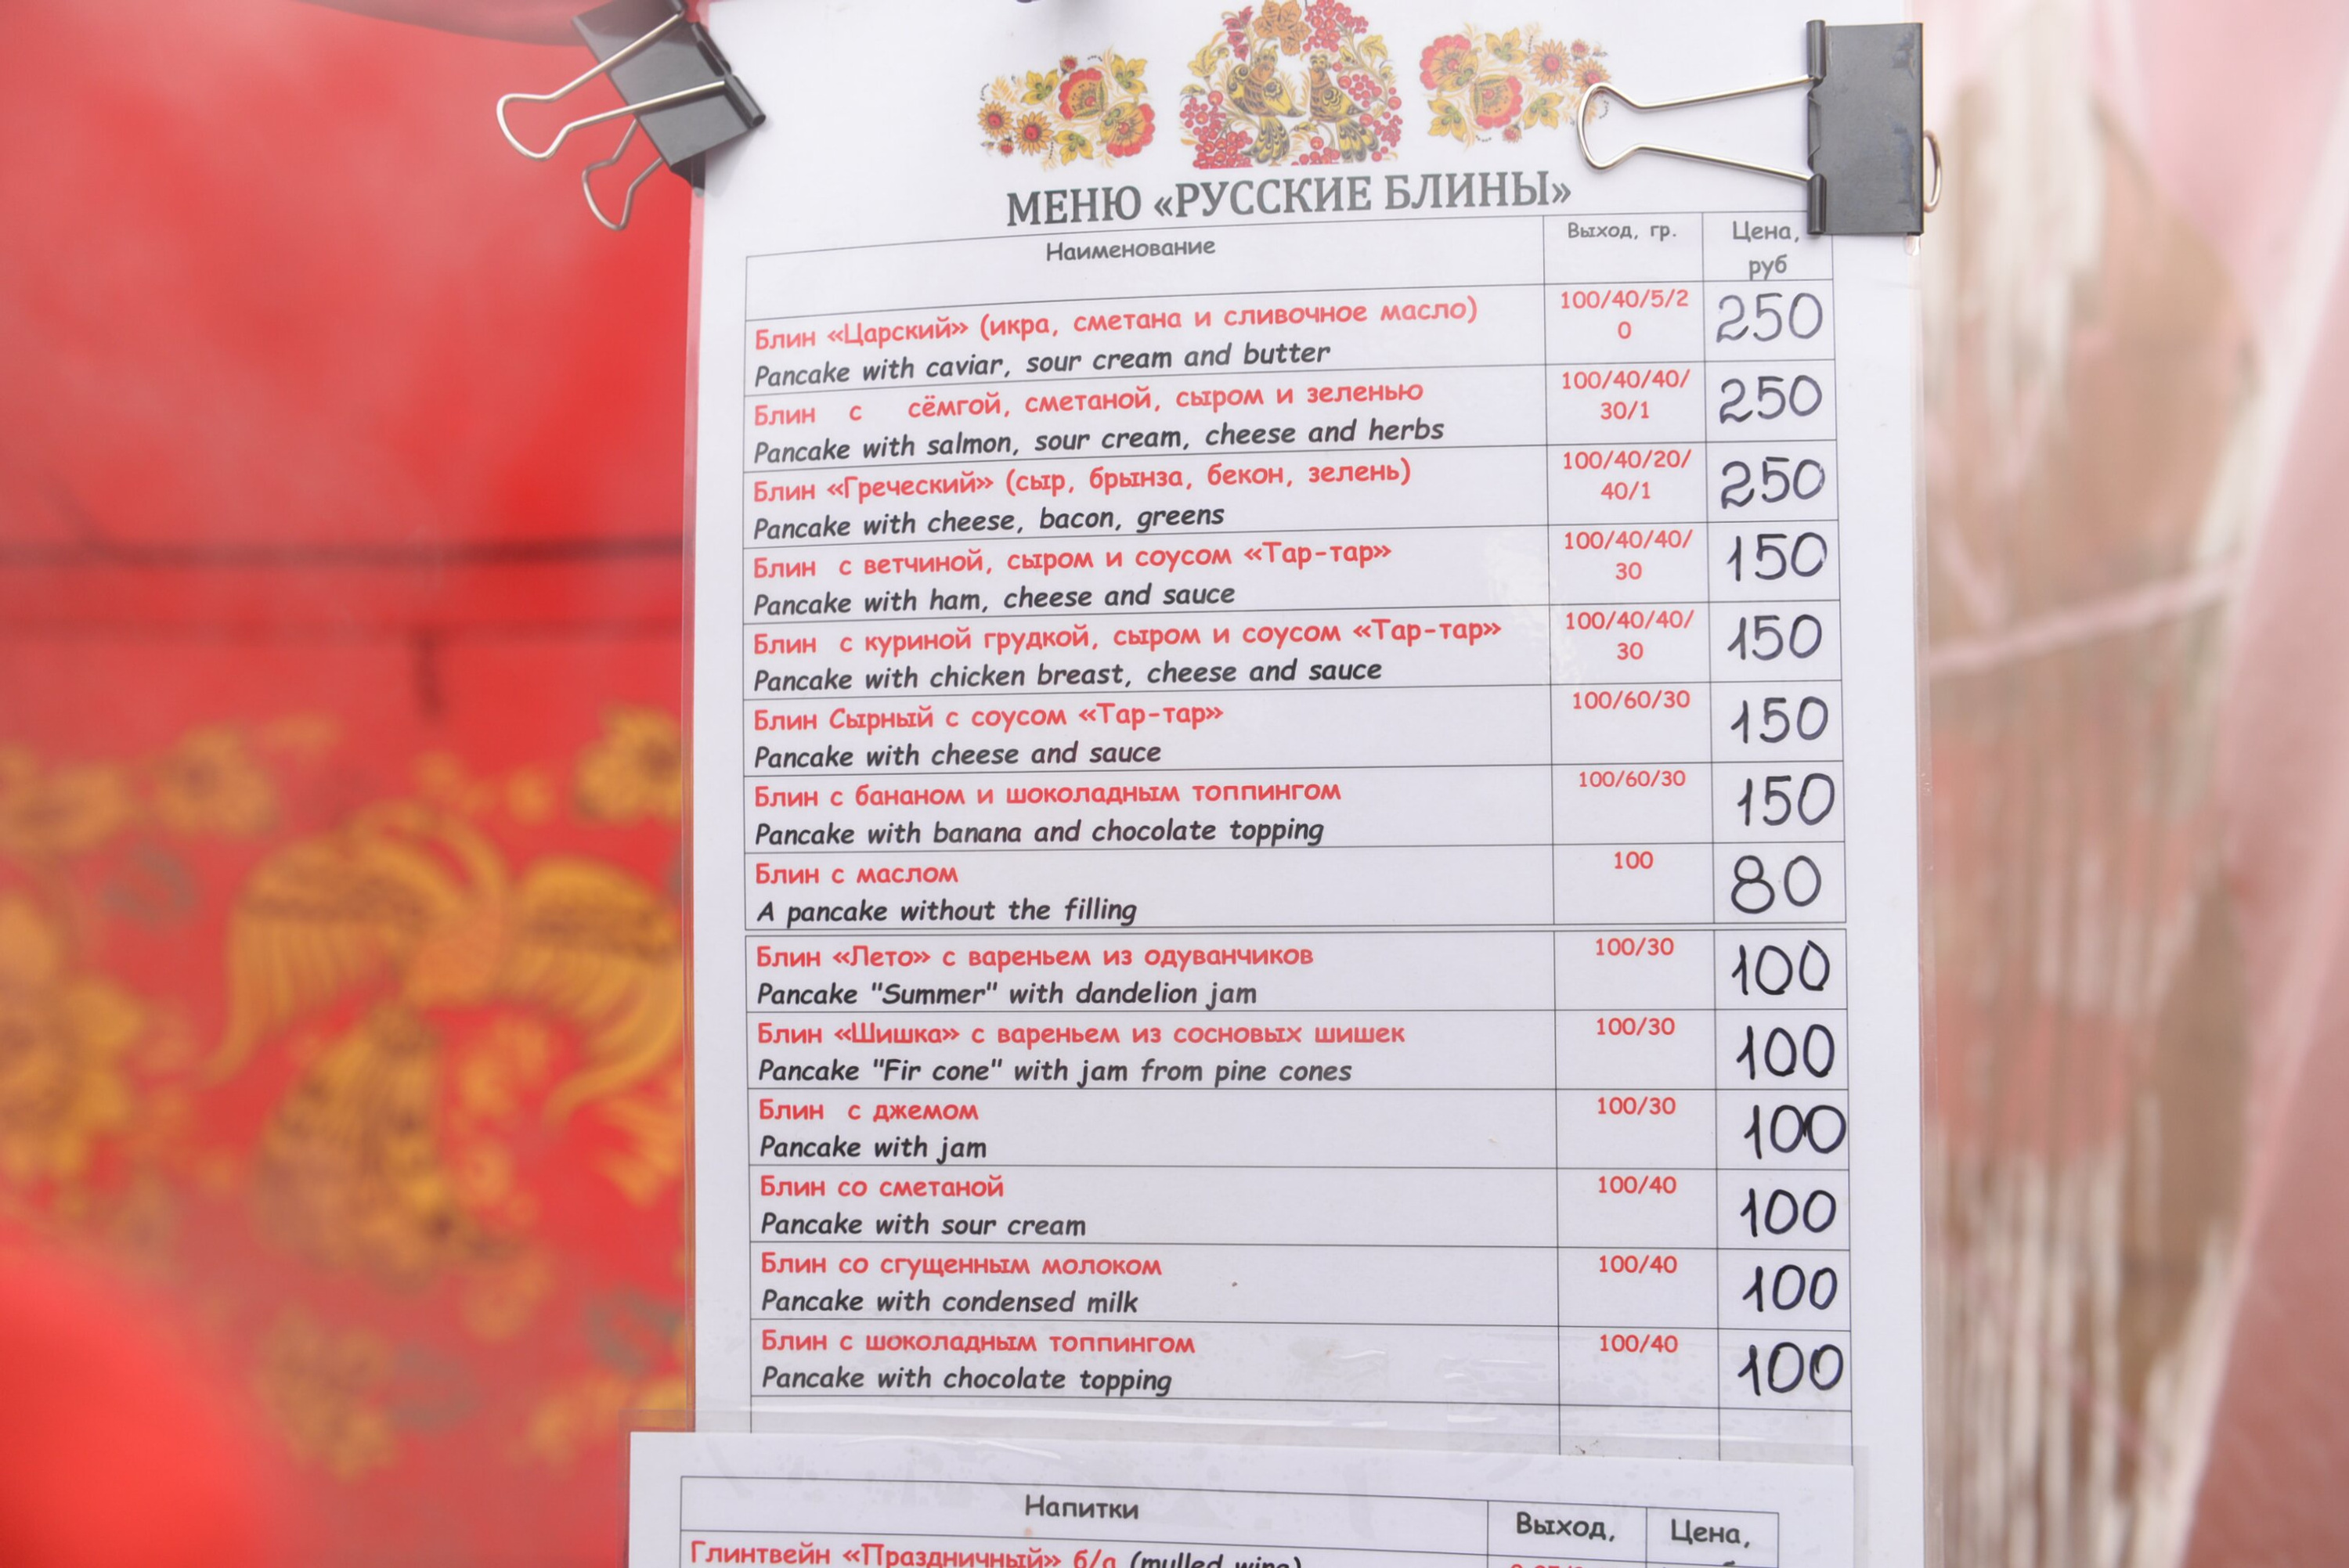 МЕНЮ «РУССКИЕ БЛИНЫ»
Наименование
Выход, гр.
Цена,
руб
Блин «Царский» (икра, сметана и сливочное масло)
Pancake with caviar, sour cream and butter
100/40/5/2
0
250
Блин с сёмгой, сметаной, сыром и зеленью
Pancake with salmon, sour cream, cheese and herbs
100/40/40/
30/1
250
Блин «Греческий» (сыр, брынза, бекон, зелень)
Pancake with cheese, bacon, greens
100/40/20/
40/1
250
Блин с ветчиной, сыром и соусом «Тар-тар»
Pancake with ham, cheese and sauce
100/40/40/
30
150
Блин с куриной грудкой, сыром и соусом «Тар-тар»
Pancake with chicken breast, cheese and sauce
100/40/40/
30
150
Блин Сырный с соусом «Тар-тар»
Pancake with cheese and sauce
100/60/30
150
Блин с бананом и шоколадным топпингом
Pancake with banana and chocolate topping
100/60/30
150
Блин с маслом
A pancake without the filling
100
80
Блин «Лето» с вареньем из одуванчиков
Pancake "Summer" with dandelion jam
100/30
100
Блин «Шишка» с вареньем из сосновых шишек
Pancake "Fir cone" with jam from pine cones
100/30
100
Блин с джемом
Pancake with jam
100/30
100
Блин со сметаной
Pancake with sour cream
100/40
100
Блин со сгущенным молоком
Pancake with condensed milk
100/40
100
Блин с шоколадным топпингом
Pancake with chocolate topping
100/40
100
Напитки
Выход,
Цена,
Глинтвейн «Праздничный» б/а (mulled wine)